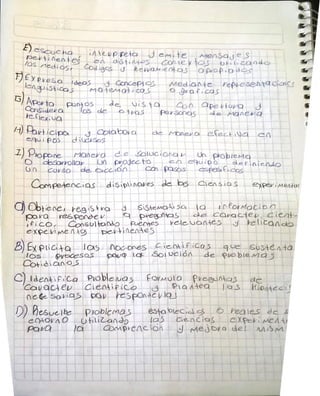 E) escucha interpreta y emite mensajes
pertinentes en distintos contextos utilizando
los medios, codigos y herramientas apropiados
F) Expresa ideas y conceptos mediante representaciones
linguisticas matematicas o graficas
G) Aporta puntos de vista con apertura y
considera los de otras personas de manera
reflexiva
H) Participa y colabora de manera efectiva en
equipos diversos
I) Propone manera de solucionar un problema
o desarrollar un proyecto en equipo definiendo
un curso de accion con pasos especificos
Competencias disiplinares de las Ciensias experimental
A) Obtiene, registra y sistematisa la informacion
para responder a preguntas de caracter cient-
ifico, consultando fuentes relevantes y
experimentos pertinentes
B) Explicita las nociones cientificas que sustenta
los procesos para la solución de problemas
cotidianos
C) Identifica problemas formula preguntas de
caracter cientifico y plantea las hipotesis
necesarias par responderlas
D) Resuelve problemas establecidos o reales de s
entorno utilizando las ciencias experimenta
para la comprencion y mejora del mism